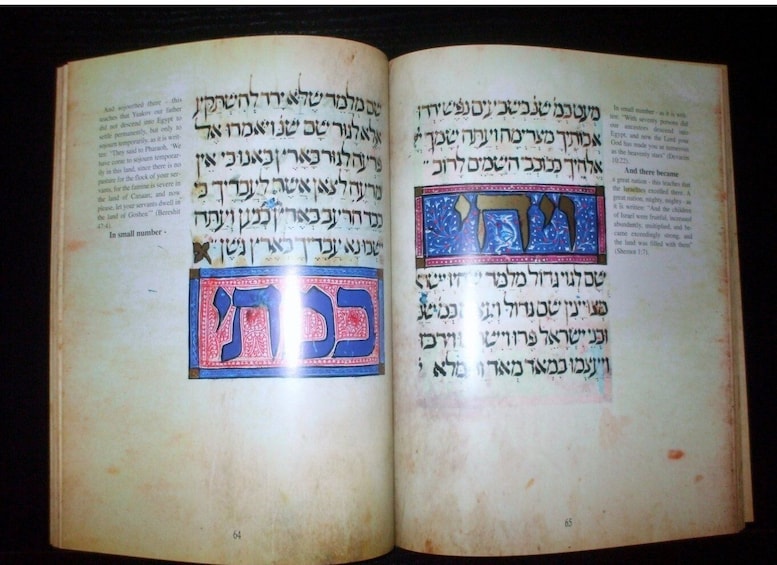 And sojourned there - this
teaches that Yaakov our father
did not descend into Egypt to
settle permanently, but only to
sojourn temporarily, as it is writ-
ten: "They said to Pharaoh, 'We
have come to sojourn temporar-
ily in this land, since there is no
pasture for the flock of your ser-
vants, for the famine is severe in
the land of Canaan; and now
please, let your servants dwell in
the land of Goshen.'" (Bereshit
47:4).
In small number -
שם מלמד שלא ירד להשתקע
אלא לגור שם שנ ויאמרו אל
פרעה לגור בארץ באנו כי אין
מרעה לצאן אשר לעבדיך כי
כבד הרעב בארץ כנען ועתה
ישבו נא עבדיך בארץ גשן
במתי
64
מעט כמ שנ בשבעים נפש ירדו
אבותיך מצרימה ועתה שמך
אלהיך ככוכבי השמים לרוב
ויהי
שם לגוי גדול מלמד שהיו ישר
מצויינין שם גדול ועצום כמ שנ
ובני ישראל פרו וישרצו וירבו
ויעצמו במאד מאד ותמלא
In small number - as it is writ-
ten: "With seventy persons did
our ancestors descend into
Egypt, and now the Lord your
God has made you as numerous
as the heavenly stars" (Devarim
10:22).
And there became
a great nation - this teaches that
the Israelites excelled there. A
great nation; mighty, mighty - as
it is written: "And the children
of Israel were fruitful, increased
abundantly, multiplied, and be-
came exceedingly strong, and
the land was filled with them"
(Shemot 1:7).
65